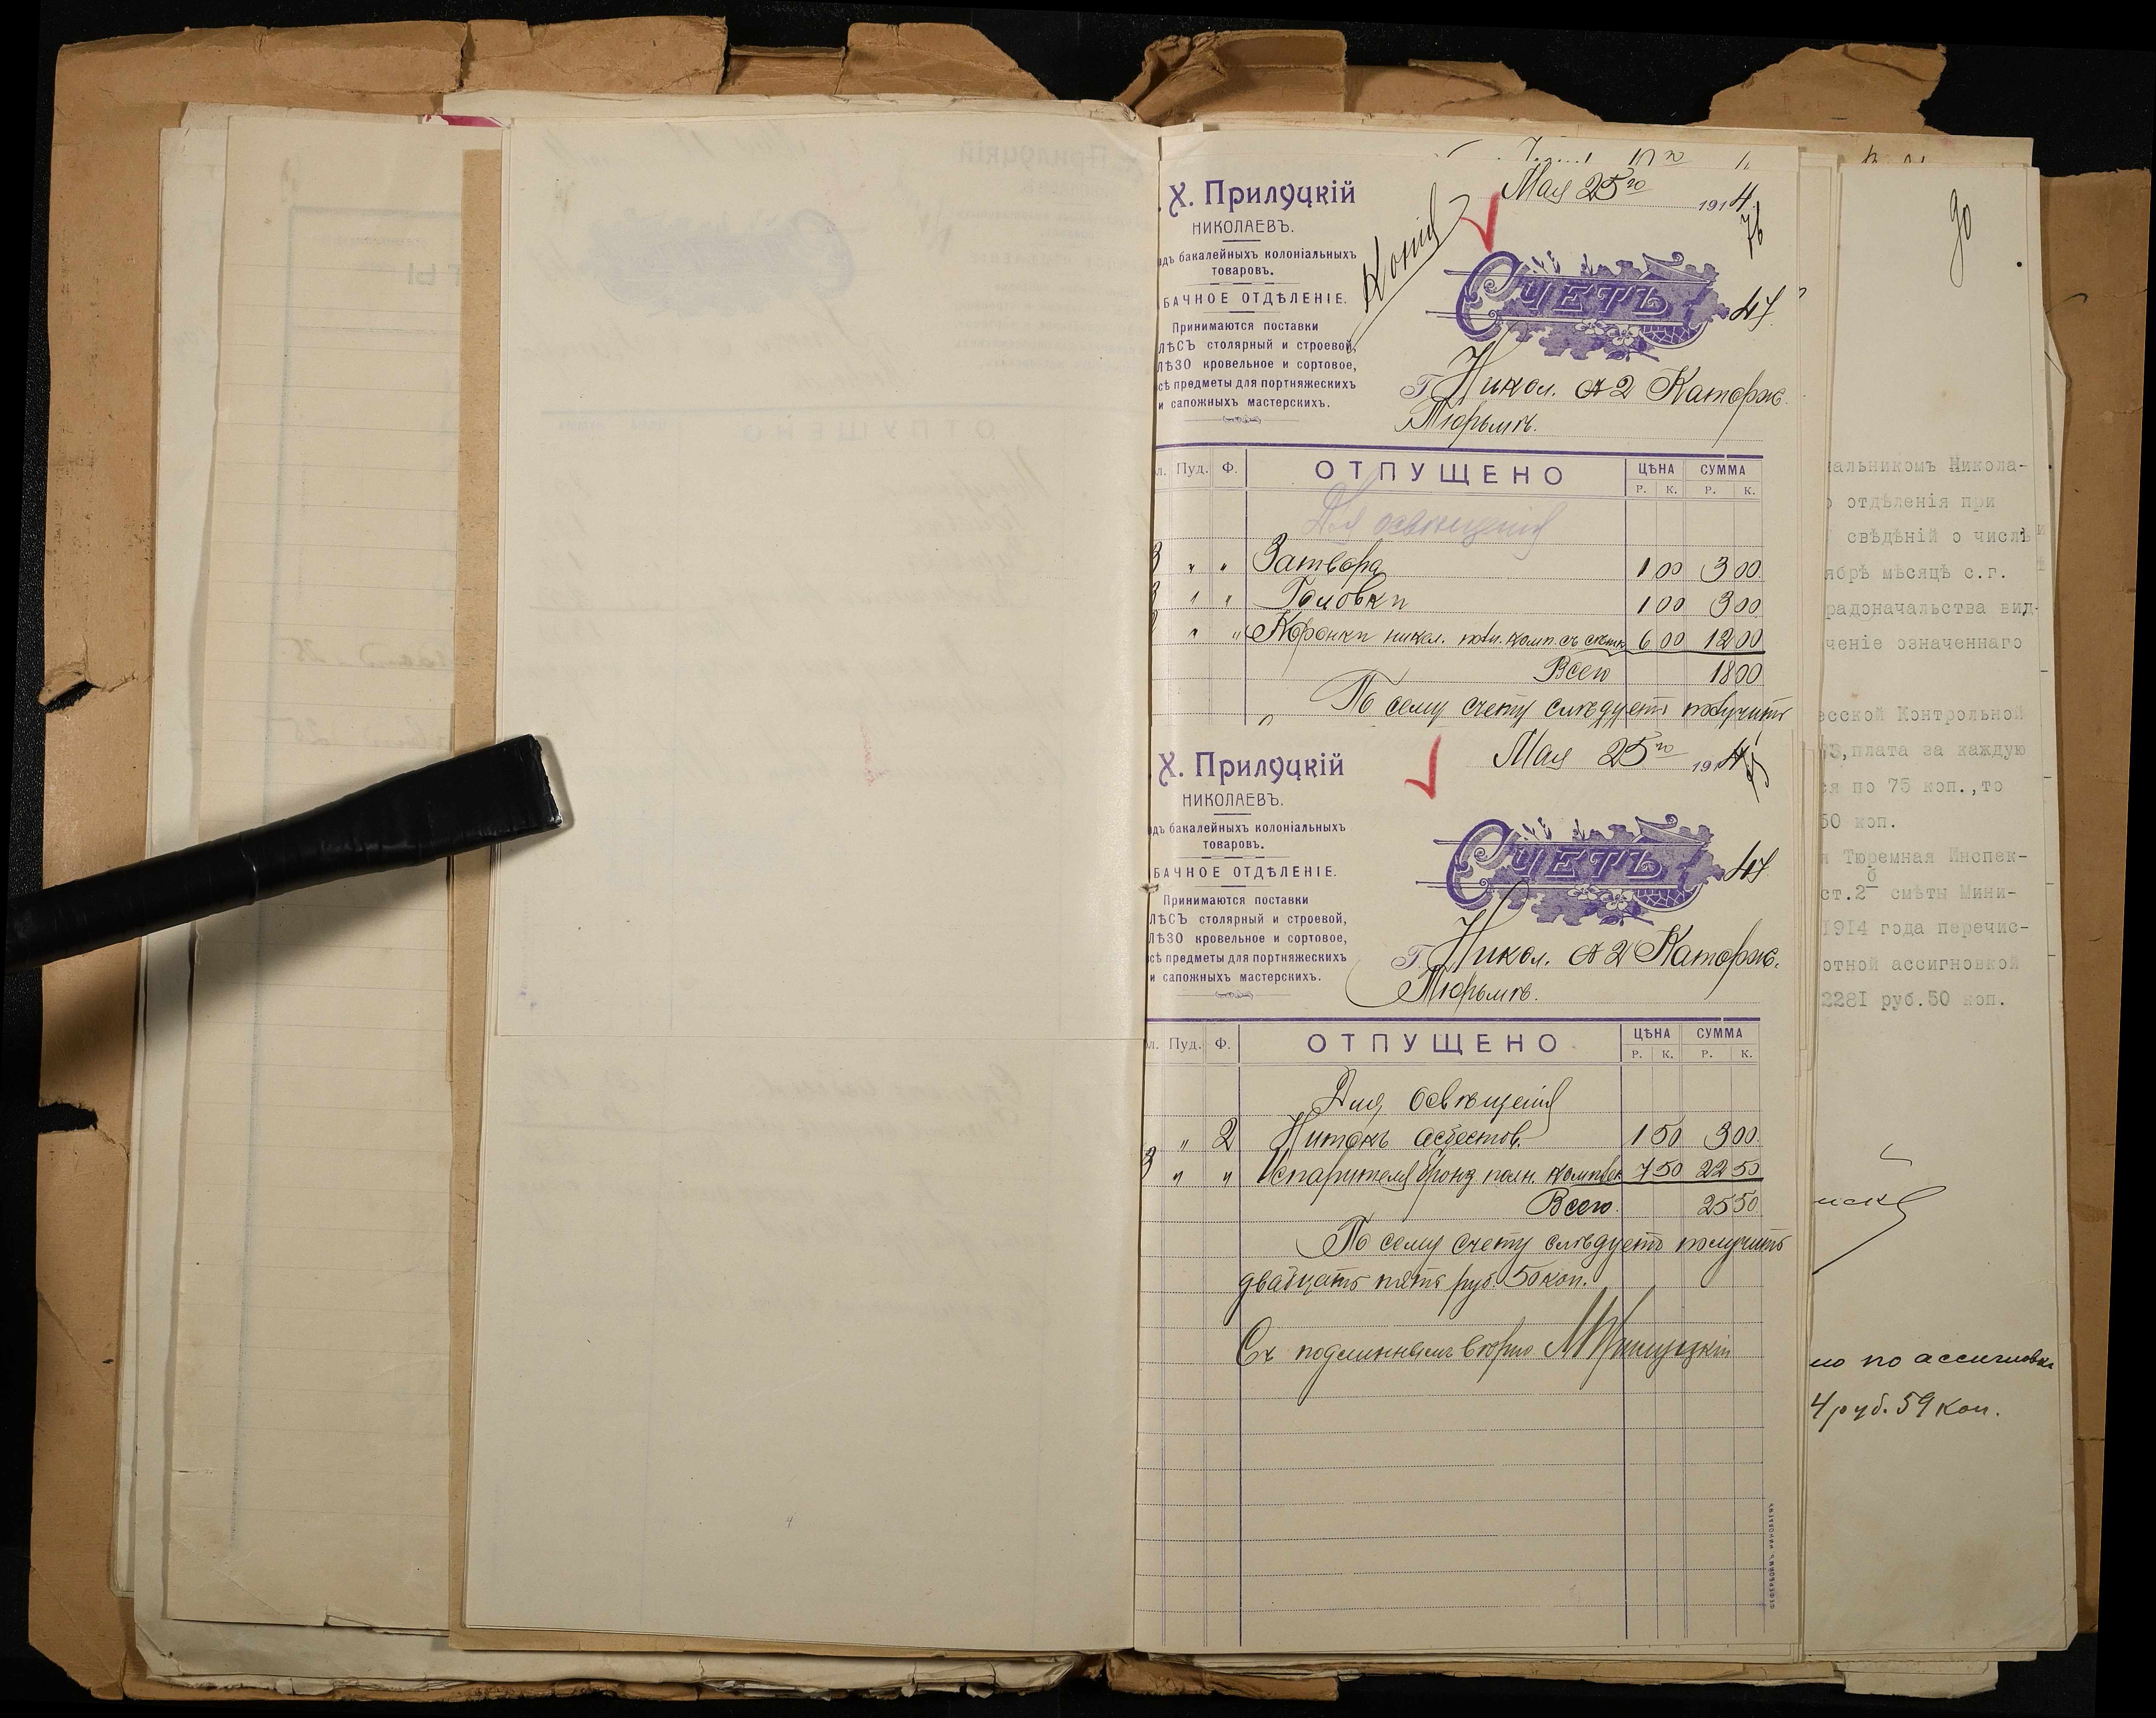 Мая 25го 1914
76
Х. Прилуцкій
НИКОЛАЕВЪ.
Копія
бакалейныхъ колоніальныхъ
товаровъ.
БАЧНОЕ ОТДѢЛЕНІЕ.
Принимаются поставки
ЛѢСЪ столярный и строевой,
ЛѢЗО кровельное и сортовое,
сѣ предметы для портняжескихъ
и сапожныхъ мастерскихъ.
Счетъ
47
Г. Никол. №2 Каторж.
Тюрьмѣ.
л. Пуд. Ф. ОТПУЩЕНО ЦѢНА СУММА
Р. К. Р. К.
Для освѣщенія
3 " " Затвора 1 00 3 00
3 " " Головки 1 00 3 00
" " Коронки никел. полн. комп. съ 6 00 12 00
Всего 18 00
По сему счету слѣдуетъ получить
Мая 25го 1914
75
Х. Прилуцкій
НИКОЛАЕВЪ.
адъ бакалейныхъ колоніальныхъ
товаровъ.
БАЧНОЕ ОТДѢЛЕНІЕ.
Принимаются поставки
ЛѢСЪ столярный и строевой,
ЛѢЗО кровельное и сортовое,
сѣ предметы для портняжескихъ
и сапожныхъ мастерскихъ.
Счетъ
47
Г. Никол. №2 Каторж.
Тюрьмѣ.
л. Пуд. Ф. ОТПУЩЕНО ЦѢНА СУММА
Р. К. Р. К.
Для освѣщенія
" 2 Нитокъ асбестов. 1 50 3 00
3 " " Испарителя бронз полн. комплек 7 50 22 50
Всего 25 50
По сему счету слѣдуетъ получить
двадцать пять руб. 50 коп.
Съ подлиннымъ вѣрно МПрилуцкій
ФЕФЕРБОЙМЪ НИКОЛАЕВЪ
90
чальникомъ Никола-
о отдѣленія при
свѣдѣній о числѣ
ябрѣ мѣсяцѣ с.г.
радоначальства вид-
ченіе означеннаго
есской Контрольной
плата за каждую
ся по 75 коп.,то
50 коп.
я Тюремная Инспек-
ст.2б смѣты Мини-
1914 года перечис-
отной ассигновкой
2281 руб.50 коп.
но по ассигновкѣ
4 руб. 59 коп.